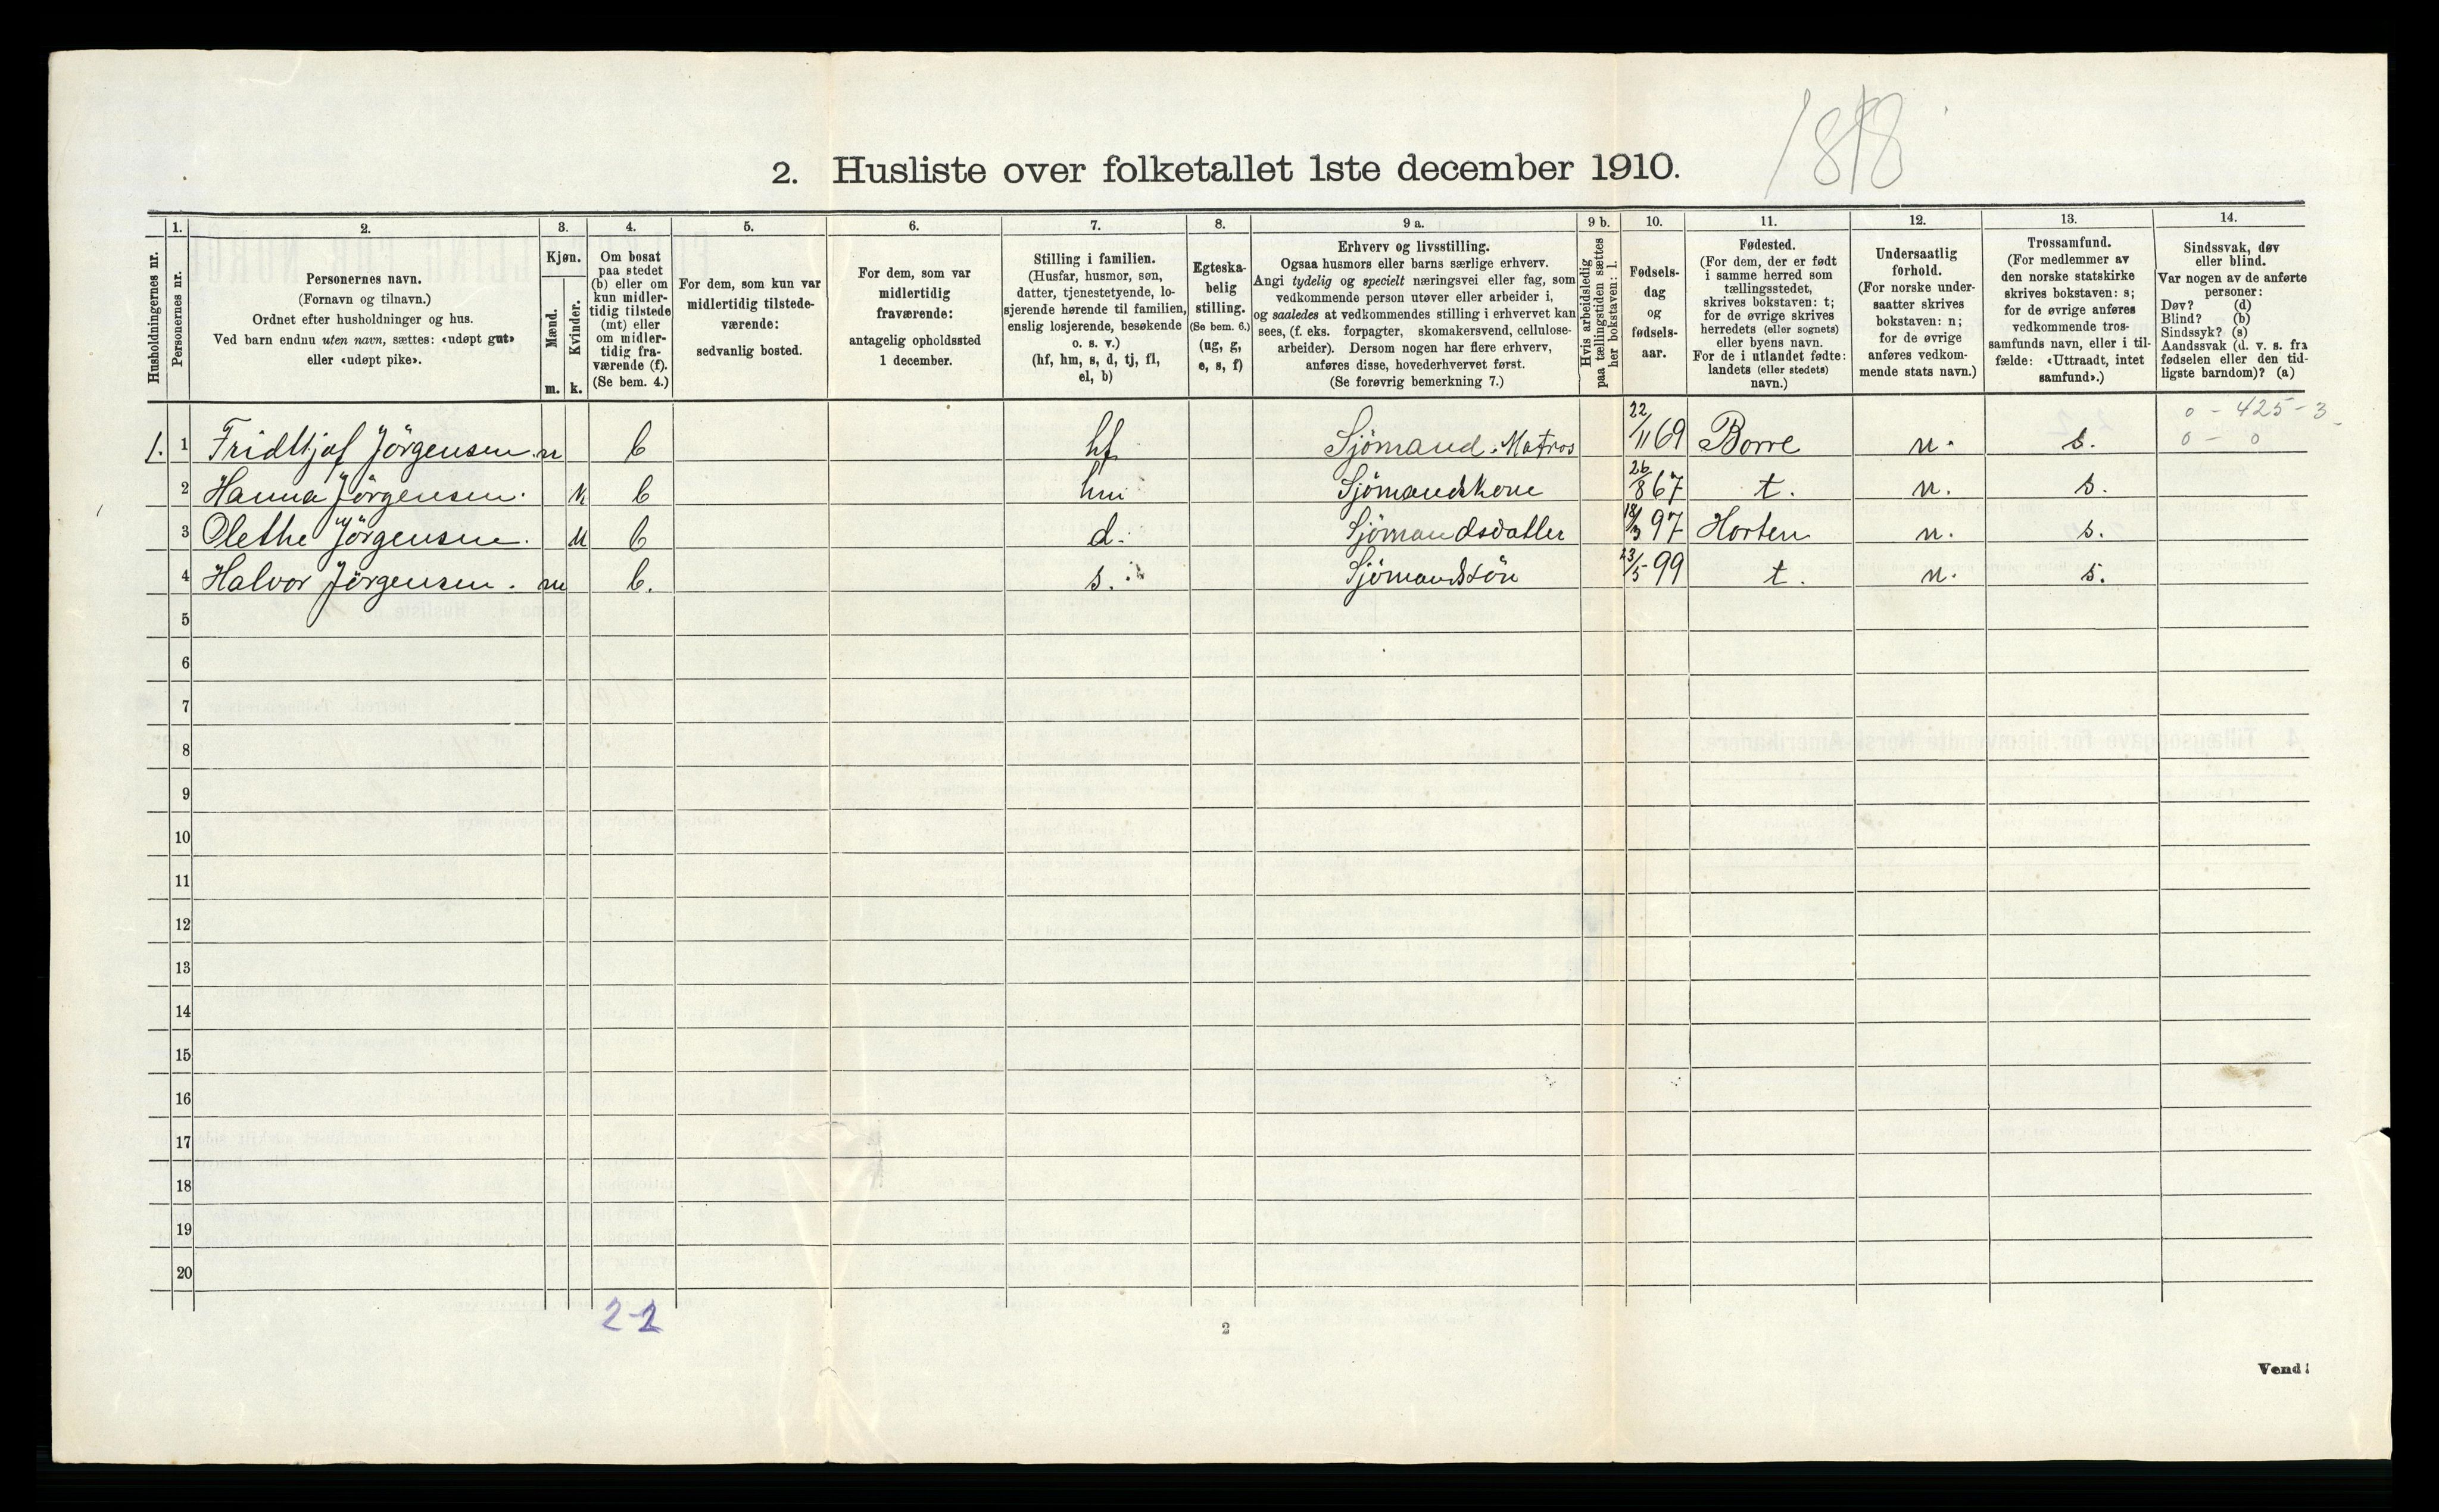 1818
2. Husliste over folketallet 1ste december 1910.
Husholdningernes nr.
1.
Personernes nr.
2.
Personernes navn.
(Fornavn og tilnavn.)
Ordnet efter husholdninger og hus.
Ved barn endnu uten navn, sættes: «udøpt gut»
eller «udøpt pike».
3.
Kjøn.
Mænd.
m.
Kvinder.
k.
4.
Om bosat
paa stedet
(b) eller om
kun midler-
tidig tilstede
(mt) eller
om midler-
tidig fra-
værende (f).
(Se bem. 4.)
5.
For dem, som kun var
midlertidig tilstede-
værende:
sedvanlig bosted.
6.
For dem, som var
midlertidig
fraværende:
antagelig opholdssted
1 december.
7.
Stilling i familien.
(Husfar, husmor, søn,
datter, tjenestetyende, lo-
sjerende hørende til familien,
enslig losjerende, besøkende
o. s. v.)
(hf, hm, s, d, tj, fl,
el, b)
8.
Egteska-
belig
stilling.
(Se bem. 6.)
(ug, g,
e, s, f)
9 a.
Erhverv og livsstilling.
Ogsaa husmors eller barns særlige erhverv.
Angi tydelig og specielt næringsvei eller fag, som
vedkommende person utøver eller arbeider i,
og saaledes at vedkommendes stilling i erhvervet kan
sees, (f. eks. forpagter, skomakersvend, cellulose-
arbeider). Dersom nogen har flere erhverv,
anføres disse, hovederhvervet først.
(Se forøvrig bemerkning 7.)
9 b.
Hvis arbeidsledig
paa tællingstiden sættes
her bokstaven: l.
10.
Fødsels-
dag
og
fødsels-
aar.
11.
Fødested.
(For dem, der er født
i samme herred som
tællingsstedet,
skrives bokstaven: t;
for de øvrige skrives
herredets (eller sognets)
eller byens navn.
For de i utlandet fødte:
landets (eller stedets)
navn.)
12.
Undersaatlig
forhold.
(For norske under-
saatter skrives
bokstaven: n;
for de øvrige
anføres vedkom-
mende stats navn.)
13.
Trossamfund.
(For medlemmer av
den norske statskirke
skrives bokstaven: s;
for de øvrige anføres
vedkommende tros-
samfunds navn, eller i til-
fælde: «Uttraadt, intet
samfund».)
14.
Sindssvak, døv
eller blind.
Var nogen av de anførte
personer:
Døv? (d)
Blind? (b)
Sindssyk? (s)
Aandssvak (d. v. s. fra
fødselen eller den tid-
ligste barndom)? (a)
0 - 425 - 3
1. 1 Fridthjof Jörgensen. m b hf Sjömand. Matros 22/11 69 Borre n. s. 0 - 0
2 Hanna Jörgensen. k b hm Sjömandskone 26/8 67 t. n. s.
3 Olethe Jörgensen. k b d. Sjömandsdatter 18/3 97 Horten n. s.
4 Halvor Jörgensen. m b. s. Sjömandssön 23/5 99 t. n. s.
5
6
7
8
9
10
11
12
13
14
15
16
17
18
19
20
2-2
2
Vend!